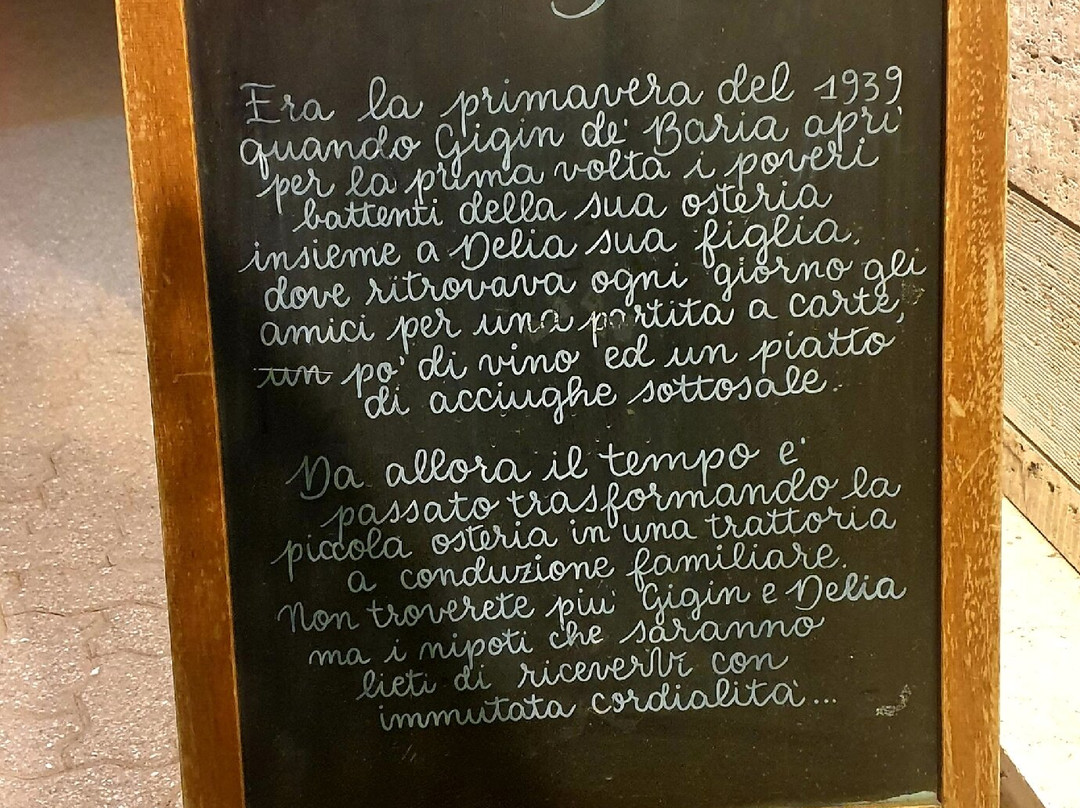 Era la primavera del 1939
quando Gigin de' Baria aprì
per la prima volta i poveri
battenti della sua osteria
insieme a Delia sua figlia.
dove ritrovava ogni giorno gli
amici per una partita a carte,
un po' di vino ed un piatto
di acciughe sottosale.
Da allora il tempo e'
passato trasformando la
piccola osteria in una trattoria
a conduzione familiare.
Non troverete piu' Gigin e Delia
ma i nipoti che saranno
lieti di ricevervi con
immutata cordialità...